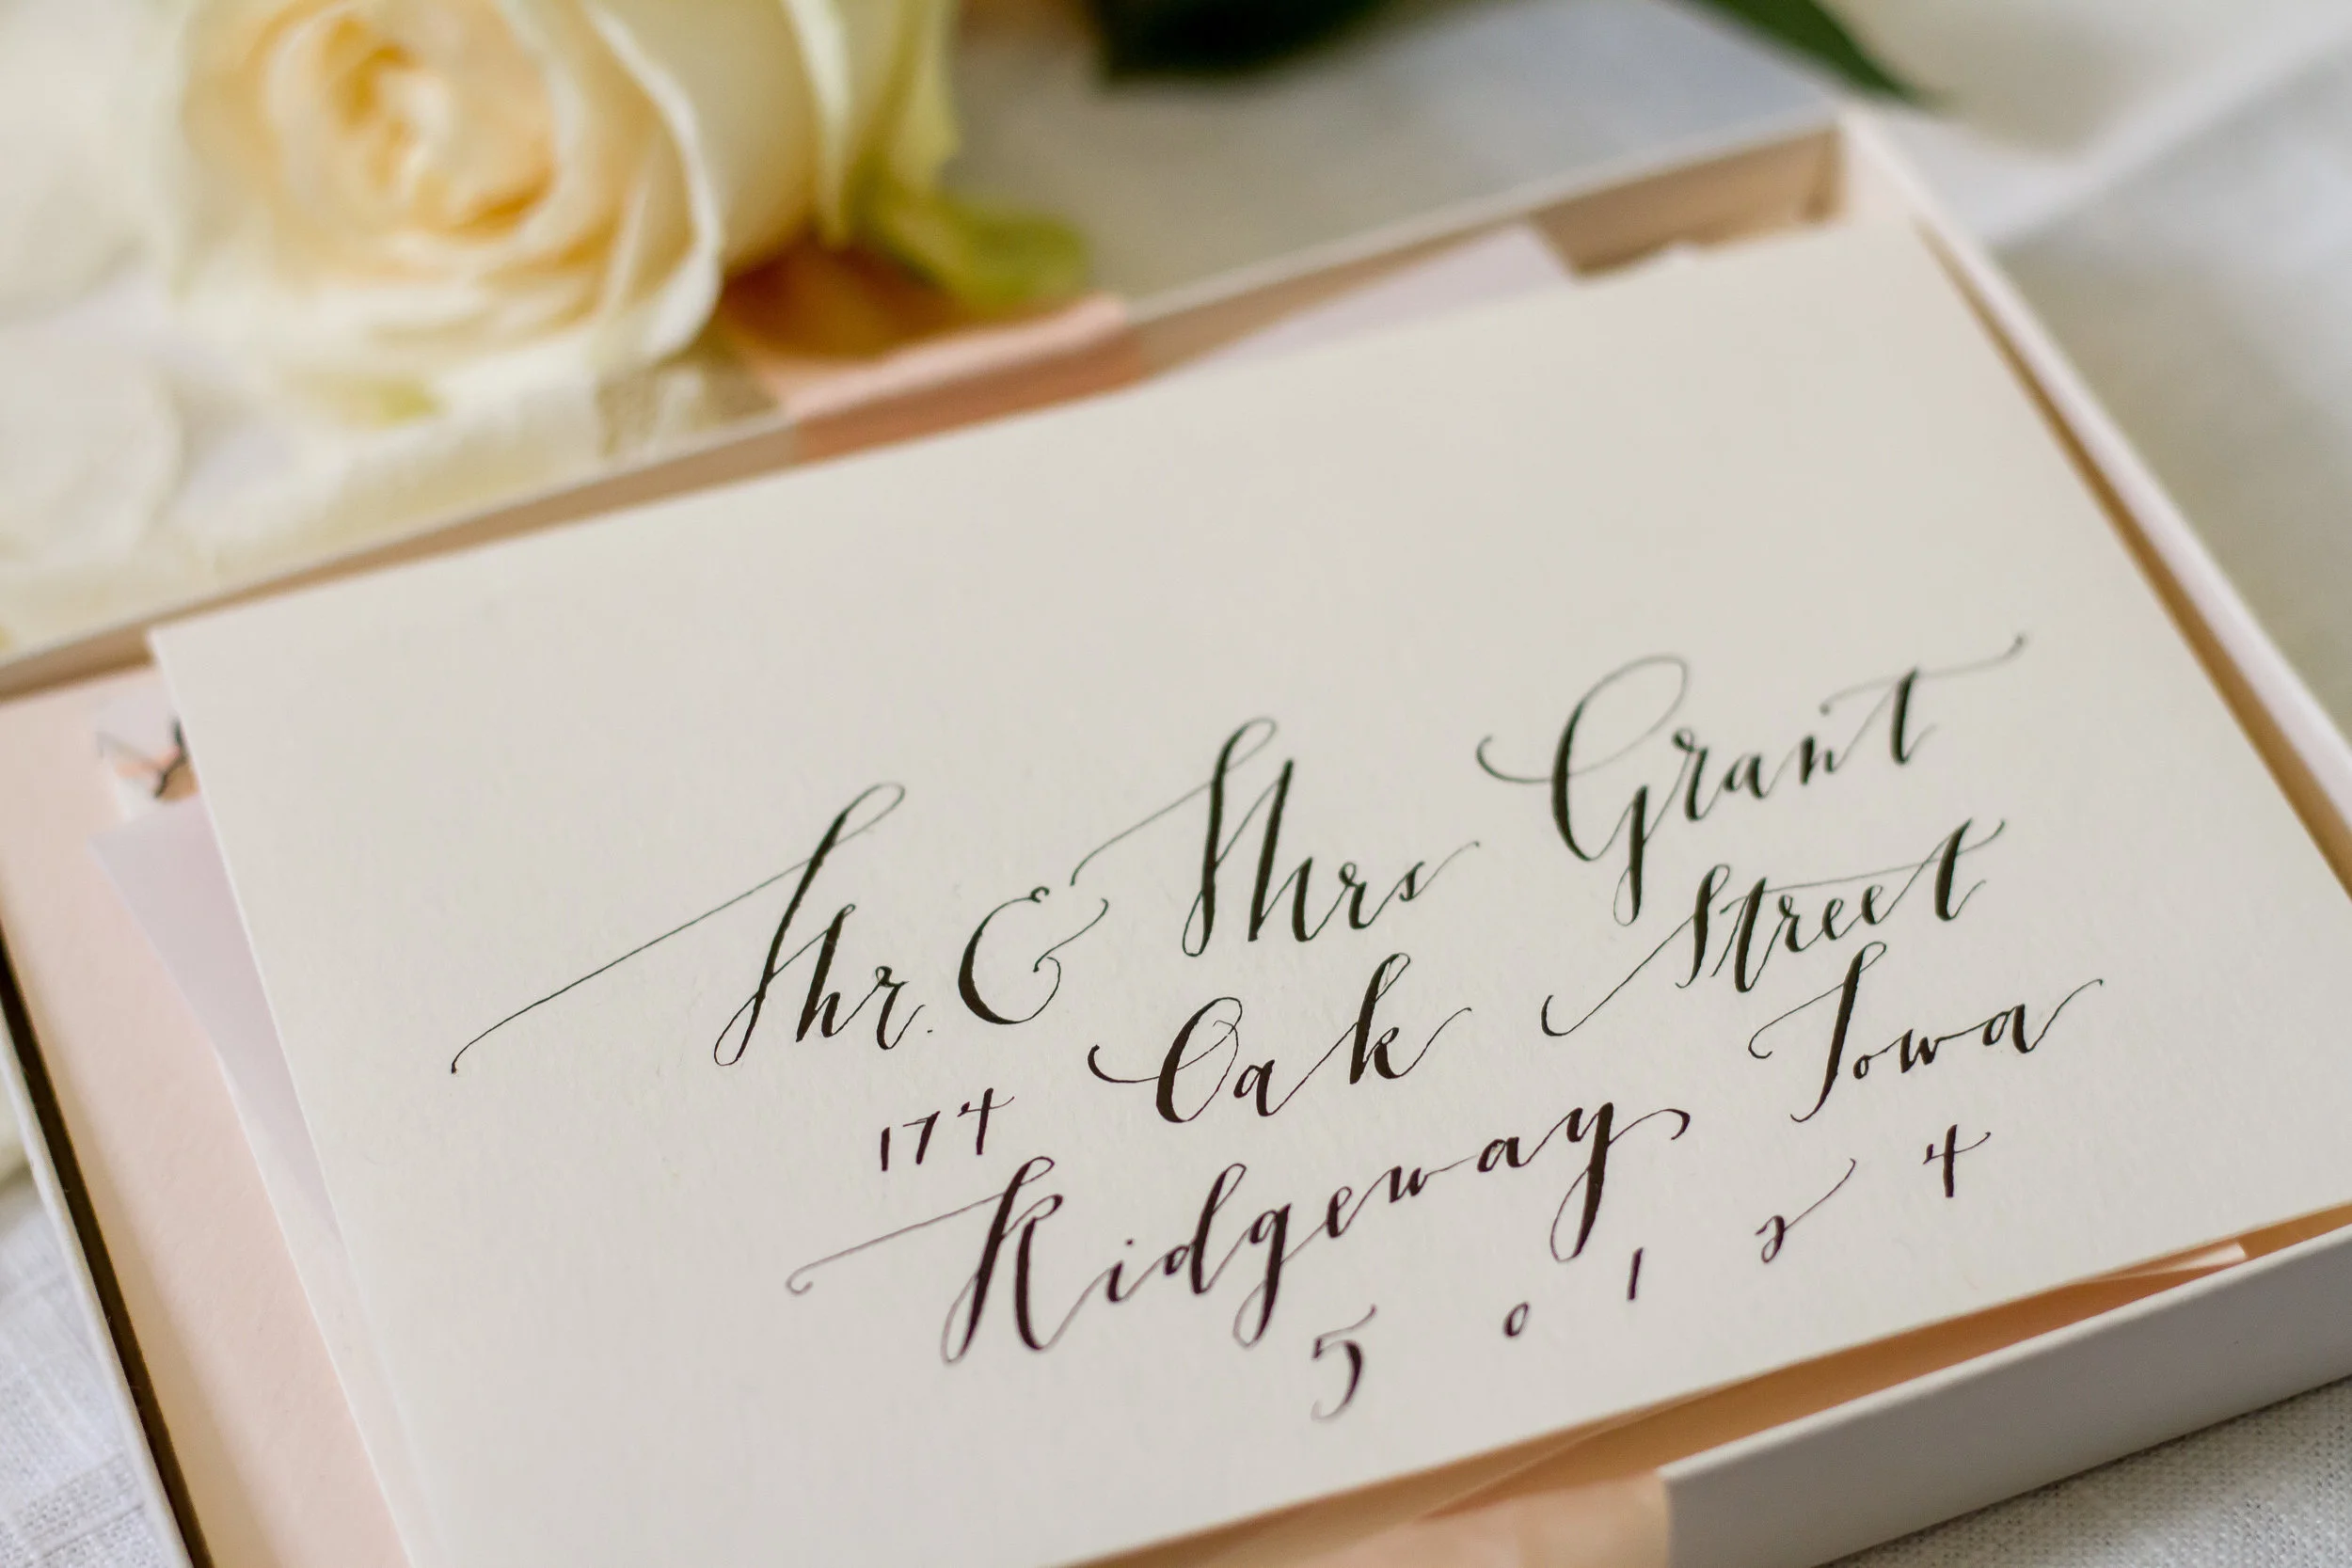 Mr. & Mrs Grant
174 Oak Street
Ridgeway Iowa
50124